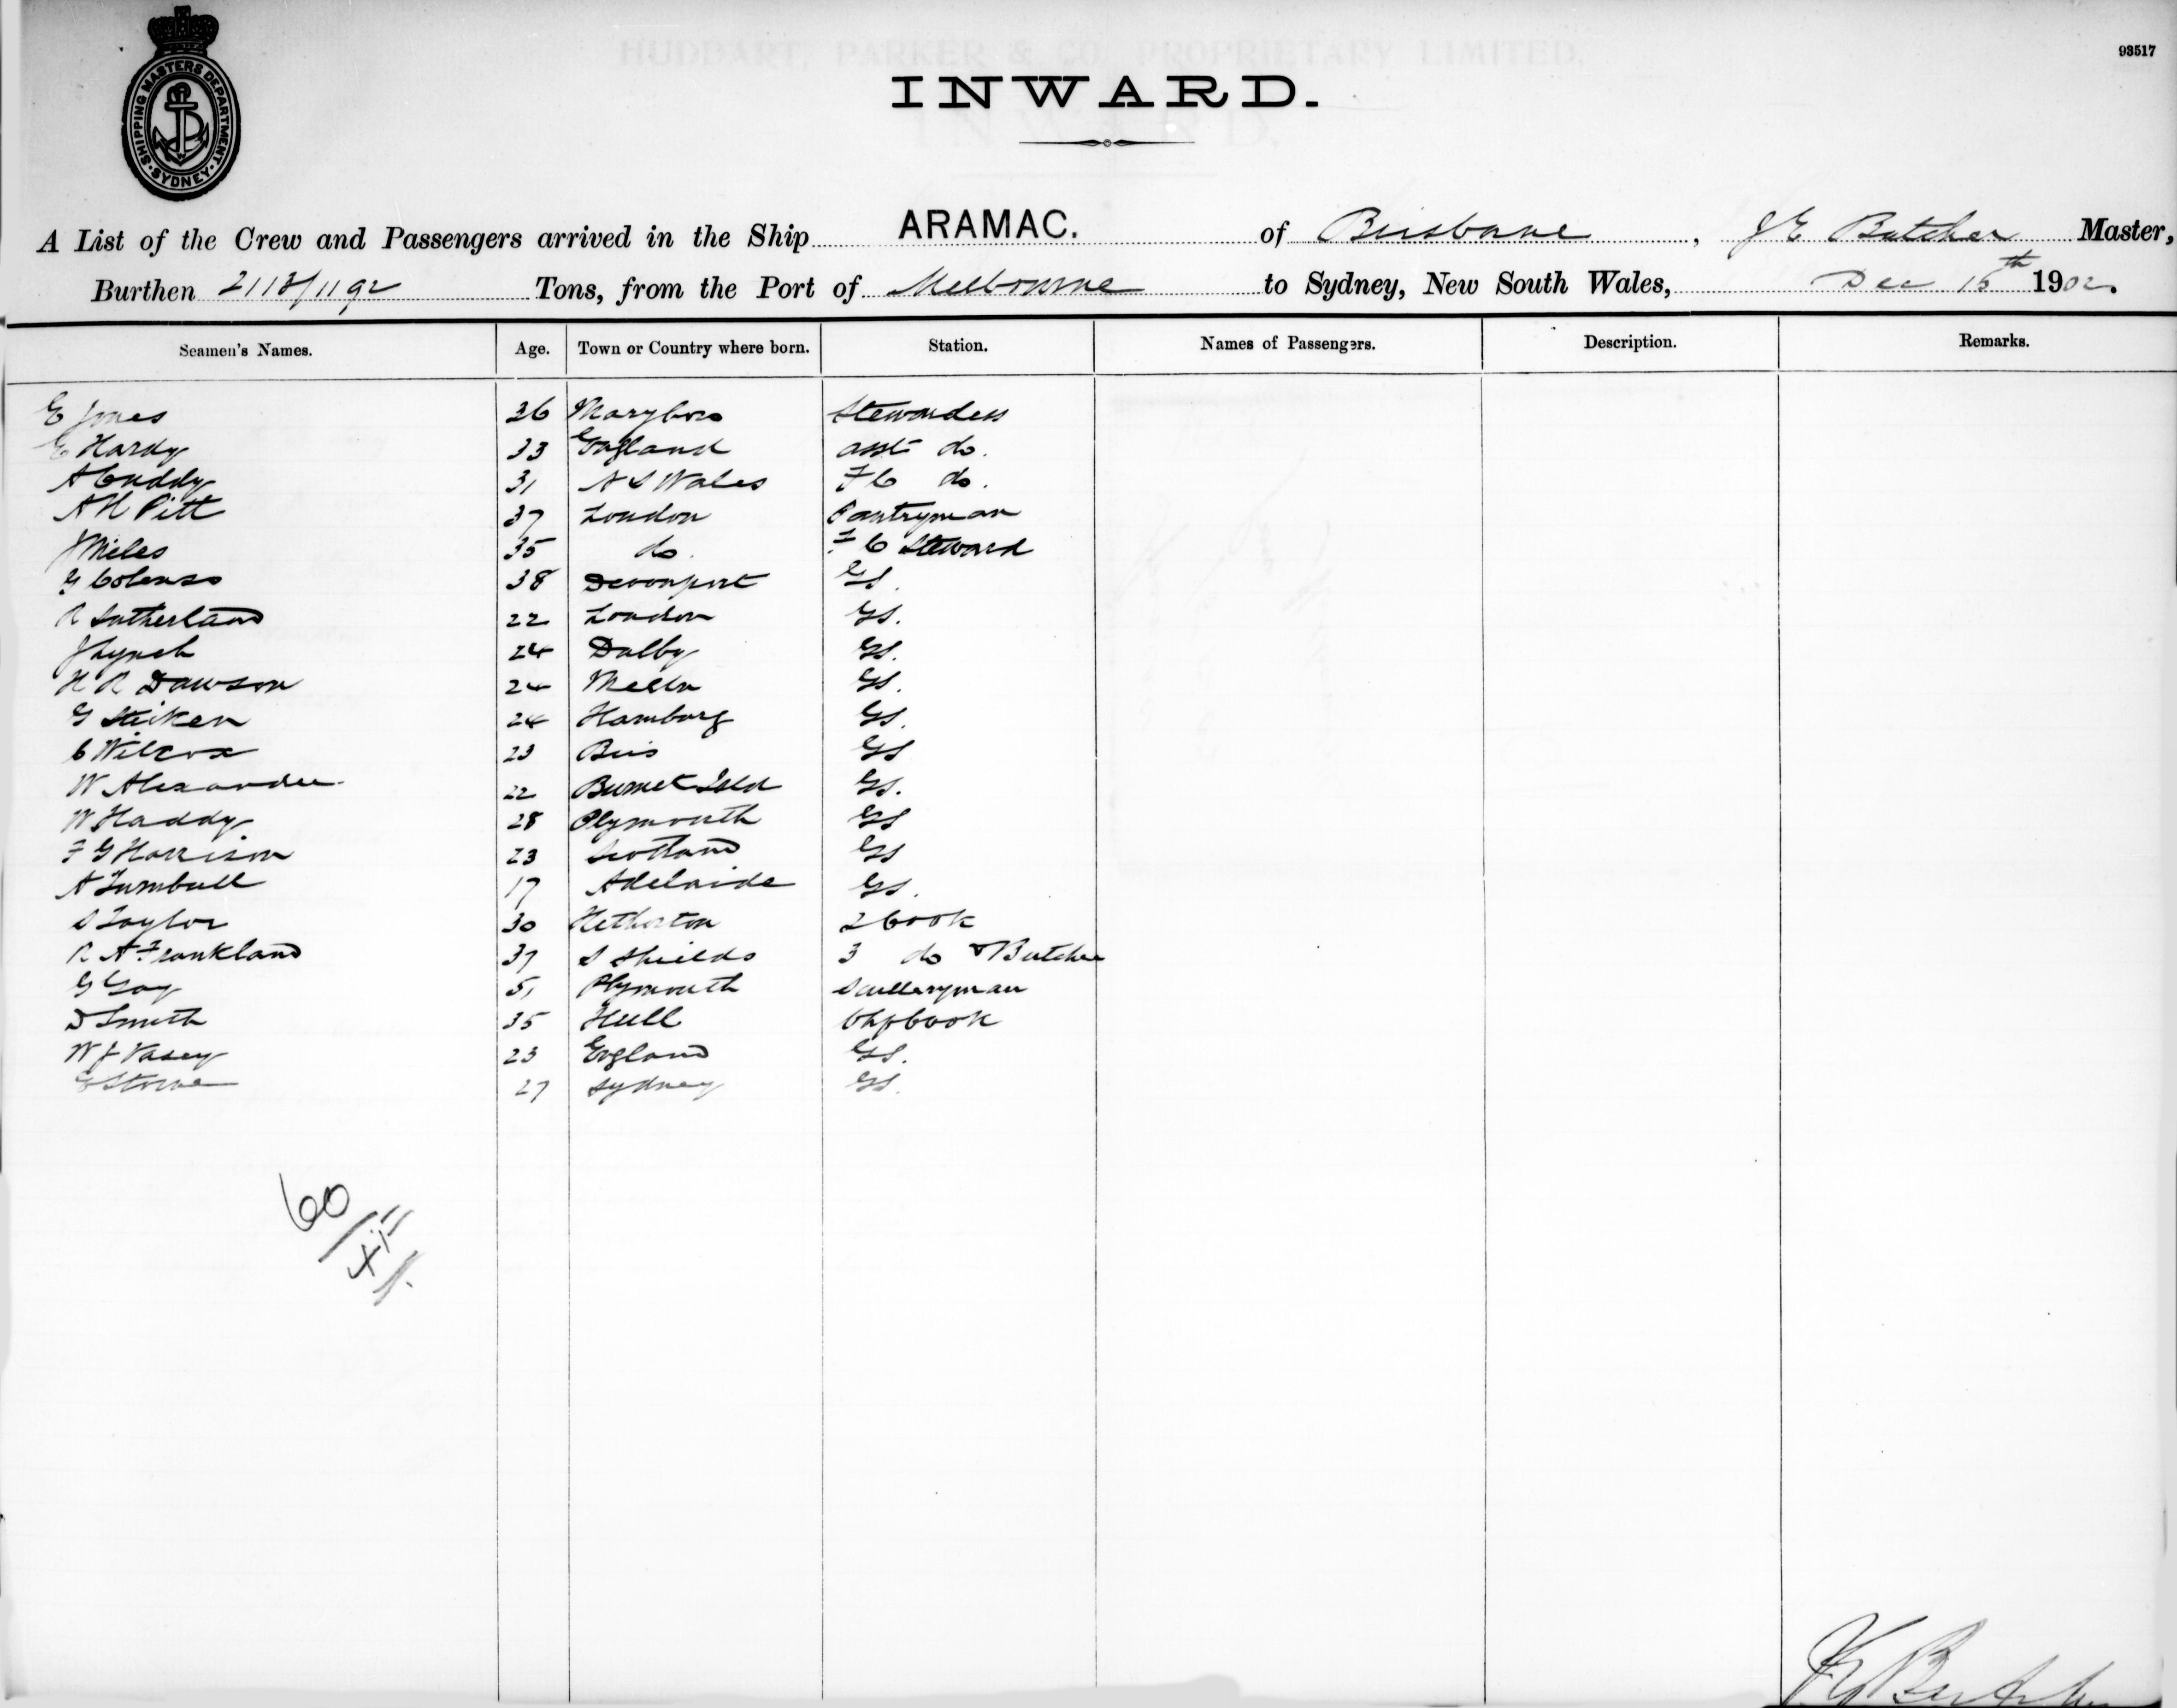 SHIPPING MASTERS DEPARTMENT. SYDNEY.
93517
HUDDART, PARKER & CO. PROPRIETARY LIMITED.
INWARD.
A List of the Crew and Passengers arrived in the Ship ARAMAC. of Brisbane, J E Butcher Master,
Burthen 2113/1192 Tons, from the Port of Melbourne to Sydney, New South Wales, Dec 15th 1902.
Seamen's Names. Age. Town or Country where born. Station. Names of Passengers. Description. Remarks.
E Jones 36 Maryboro Stewardess
E Hardy 33 England asst do.
A Cuddy 31 N S Wales F C do.
A H Pitt 37 London Pantryman
J Miles 35 do. F C Steward
G Colenso 38 Devonport GS.
R Sutherland 22 London GS.
J Lynch 24 Dalby GS.
H R Dawson 24 Melbn GS.
G Steiken 24 Hamburg GS.
C Wilcox 23 Bris GS
W Alexander 22 Burnet Qld GS.
W Haddy 28 Plymouth GS
F G Harrison 23 Scotland GS
A Turnbull 17 Adelaide GS.
S Taylor 30 Hetherton 2 Cook
R A Frankland 37 S Shields 3 do & Butcher
G Gay 51 Plymouth Sculleryman
D Smith 35 Hull Chf Cook
W J Vasey 23 England GS.
E Stone 27 Sydney GS.
60
J E Butcher